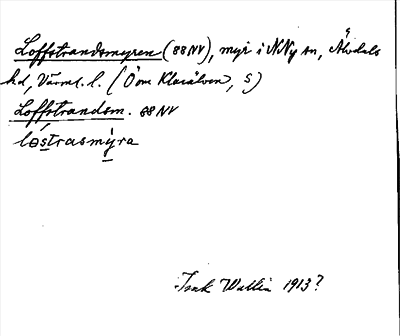 Loffstrandsmyren (88NV), myr i N Ny sn, Älvdals
hd, Värml. l. (Ö om Klarälven, S)
Loffstrandsm. 88 NV
løstrasmyra
Isak Wallin 1913?